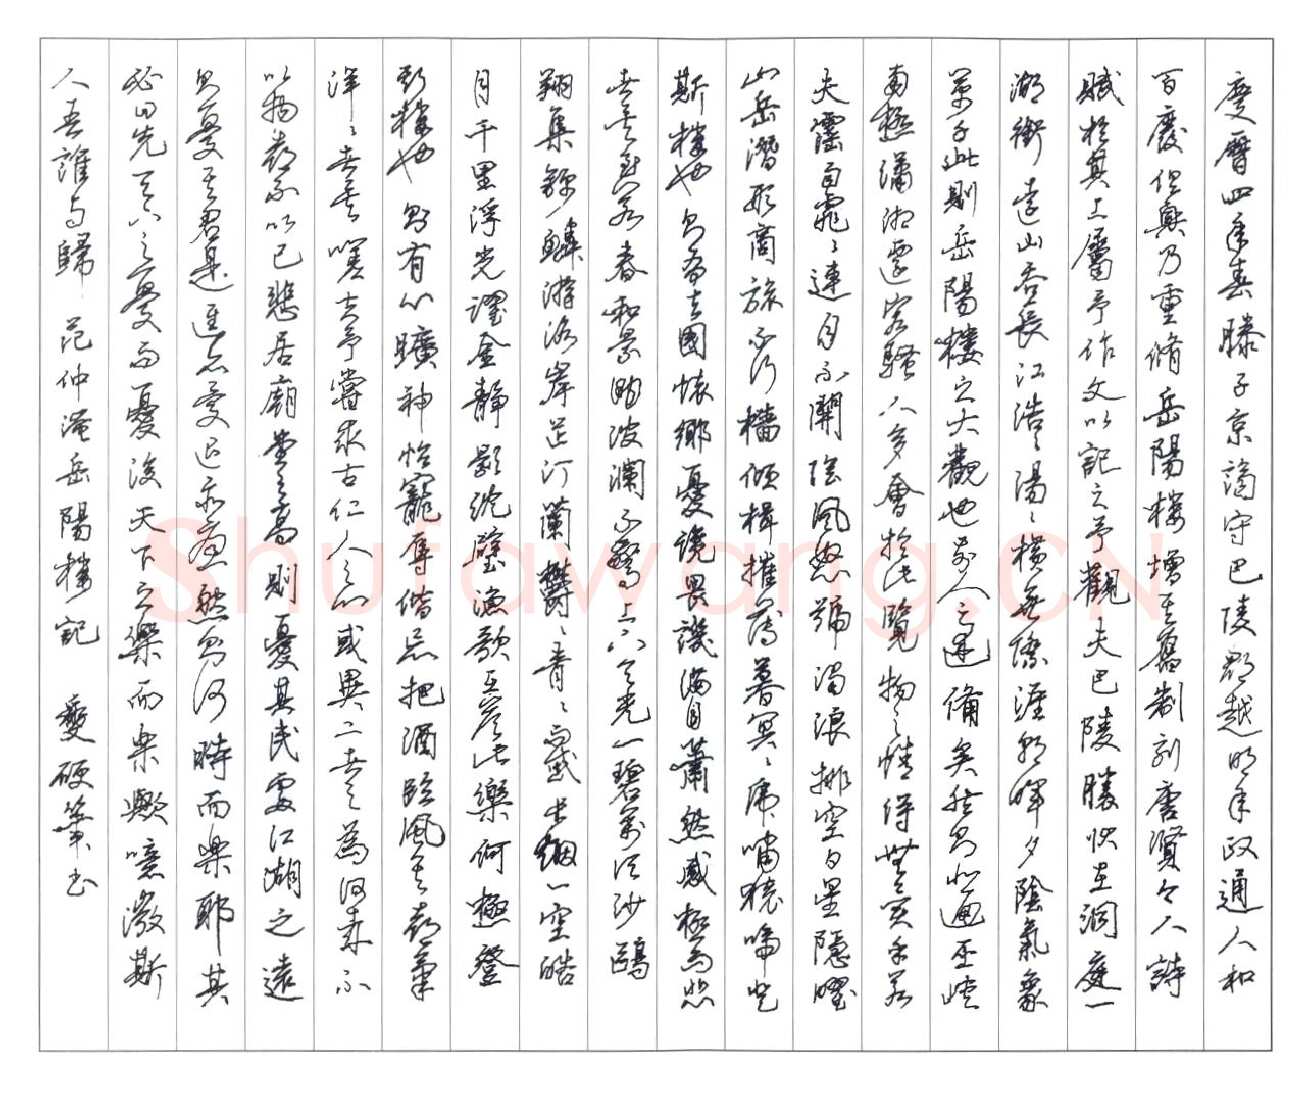 慶曆四年春滕子京謫守巴陵郡越明年政通人和
百廢俱興乃重脩岳陽樓增其舊制刻唐賢今人詩
賦於其上屬予作文以記之予觀夫巴陵勝狀在洞庭一
湖銜遠山吞長江浩浩湯湯橫無際涯朝暉夕陰氣象
萬千此則岳陽樓之大觀也前人之述備矣然則北通巫峽
南極瀟湘遷客騷人多會於此覽物之情得無異乎若
夫霪雨霏霏連月不開陰風怒號濁浪排空日星隱曜
山岳潛形商旅不行檣傾楫摧薄暮冥冥虎嘯猿啼登
斯樓也則有去國懷鄉憂讒畏譏滿目蕭然感極而悲
者矣至若春和景明波瀾不驚上下天光一碧萬頃沙鷗
翔集錦鱗游泳岸芷汀蘭鬱鬱青青而或長煙一空皓
月千里浮光躍金靜影沈璧漁歌互答此樂何極登
斯樓也則有心曠神怡寵辱偕忘把酒臨風其喜氣
洋洋者矣嗟夫予嘗求古仁人之心或異二者之為何哉不
以物喜不以已悲居廟堂之高則憂其民處江湖之遠
則憂其君是進亦憂退亦憂然則何時而樂耶其
必曰先天下之憂而憂後天下之樂而樂歟噫微斯
人吾誰與歸 范仲淹岳陽樓記 夔硬筆書
Shufawang.CN